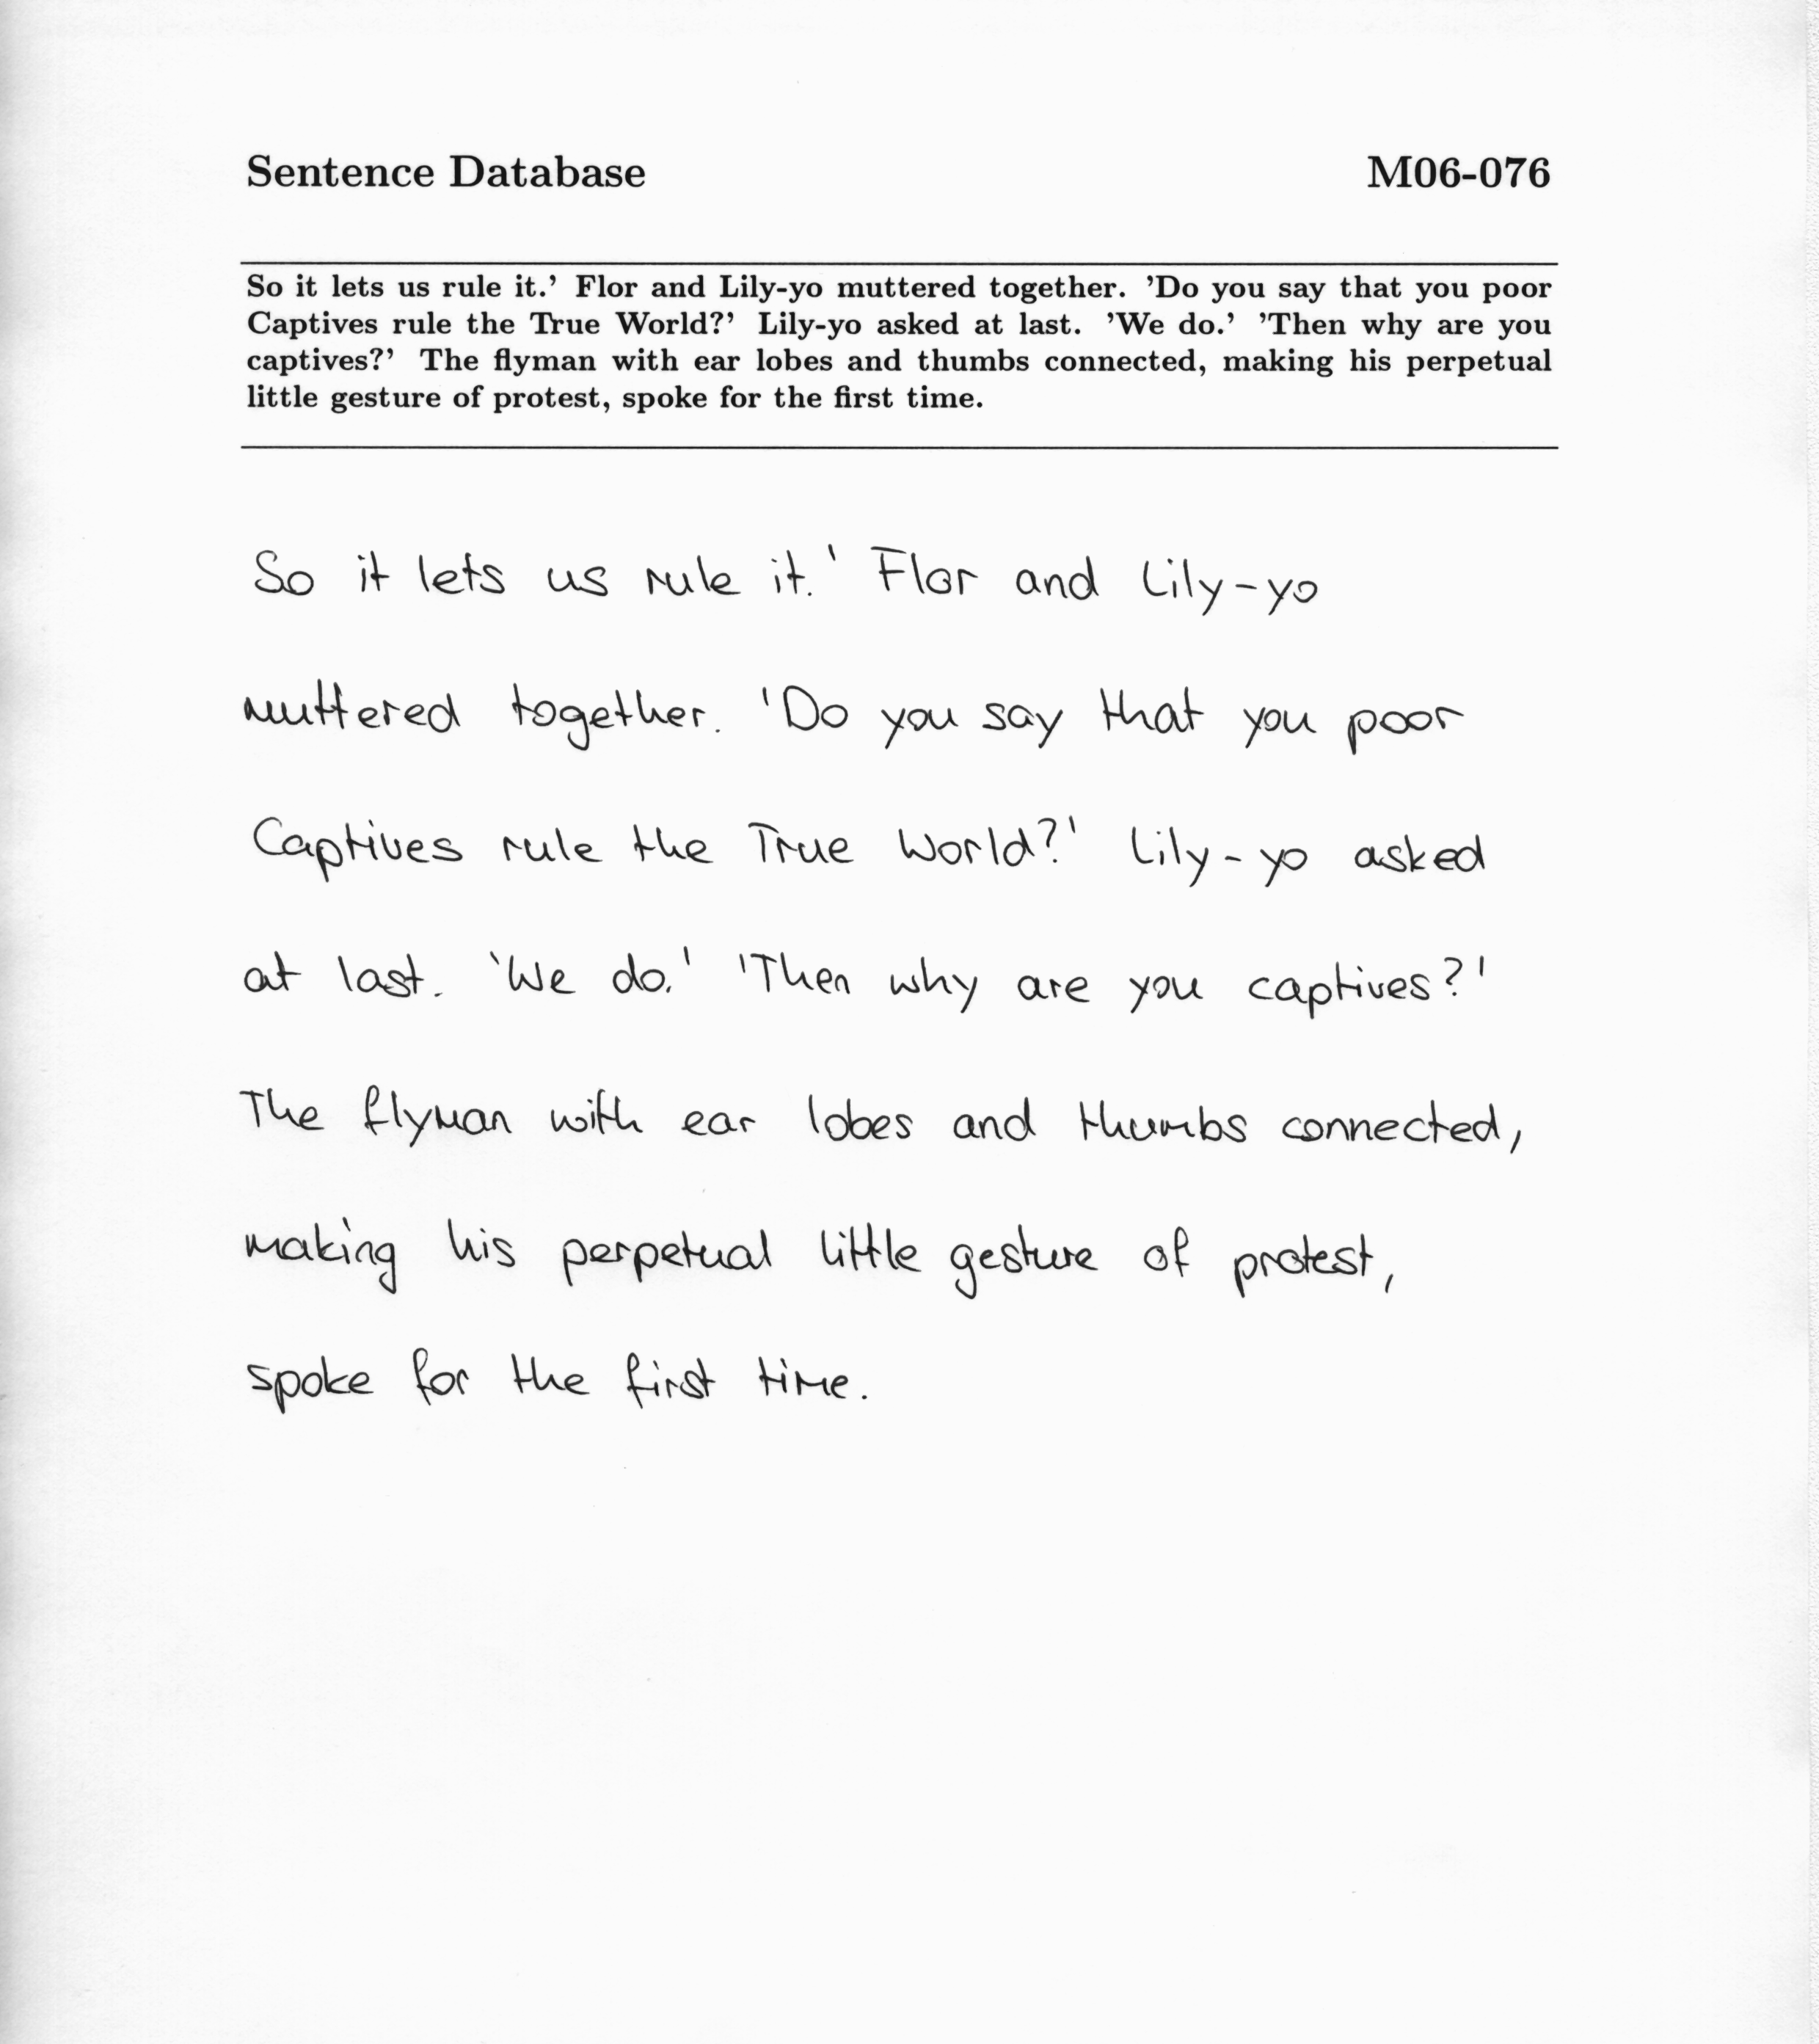 Sentence Database M06-076
So it lets us rule it.’ Flor and Lily-yo muttered together. ’Do you say that you poor
Captives rule the True World?’ Lily-yo asked at last. ’We do.’ ’Then why are you
captives?’ The flyman with ear lobes and thumbs connected, making his perpetual
little gesture of protest, spoke for the first time.
So it lets us rule it.' Flor and Lily-yo
muttered together. 'Do you say that you poor
Captives rule the True World?' Lily-yo asked
at last. 'We do.' 'Then why are you captives?'
The flyman with ear lobes and thumbs connected,
making his perpetual little gesture of protest,
spoke for the first time.